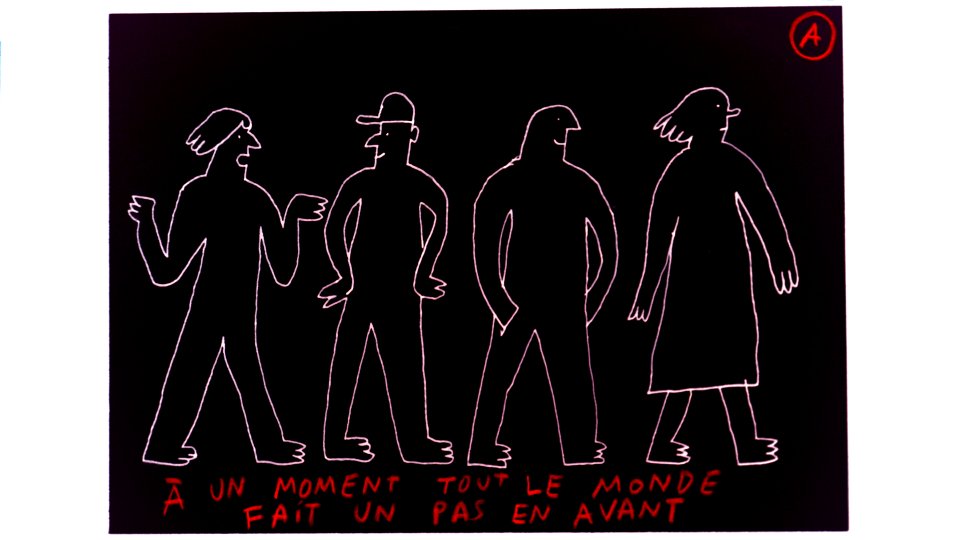 A
À UN MOMENT TOUT LE MONDE
FAIT UN PAS EN AVANT